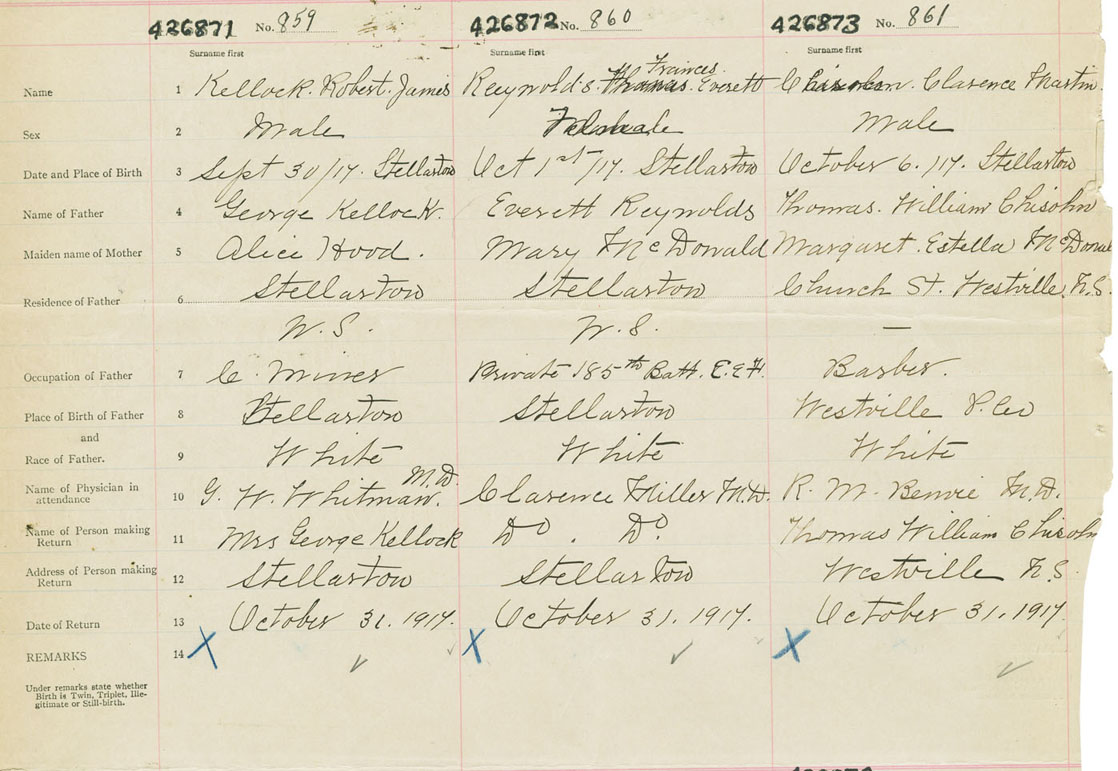 426871 No. 859 426872 No. 860 426873 No. 861
Surname first Surname first Surname first
Name 1 Kellock. Robert. James Reynolds. Thomas. Frances. Everett Chisholm. Clarence Martin.
Sex 2 Male Female Male
Date and Place of Birth 3 Sept 30/17. Stellarton Oct 1st/17. Stellarton October 6./17. Stellarton
Name of Father 4 George Kellock. Everett Reynolds Thomas. William Chisohm
Maiden name of Mother 5 Alice Hood. Mary McDonald Margaret. Estella McDonal
Residence of Father 6 Stellarton Stellarton Church St. Westville, N.S.
N.S. N.S. —
Occupation of Father 7 C. Miner Private 185th Batt. C.E.F. Barber.
Place of Birth of Father 8 Stellarton Stellarton Westville P. Co
and
Race of Father. 9 White White White
Name of Physician in attendance 10 G. W. Whitman. M.D. Clarence Miller M.D. R. M. Benvie M.D.
Name of Person making Return 11 Mrs George Kellock Do . Do. Thomas William Chisohm
Address of Person making Return 12 Stellarton Stellarton Westville N.S.
Date of Return 13 October 31. 1917. October 31. 1917. October 31. 1917.
REMARKS 14 X X X
Under remarks state whether
Birth is Twin, Triplet, Ille-
gitimate or Still-birth.